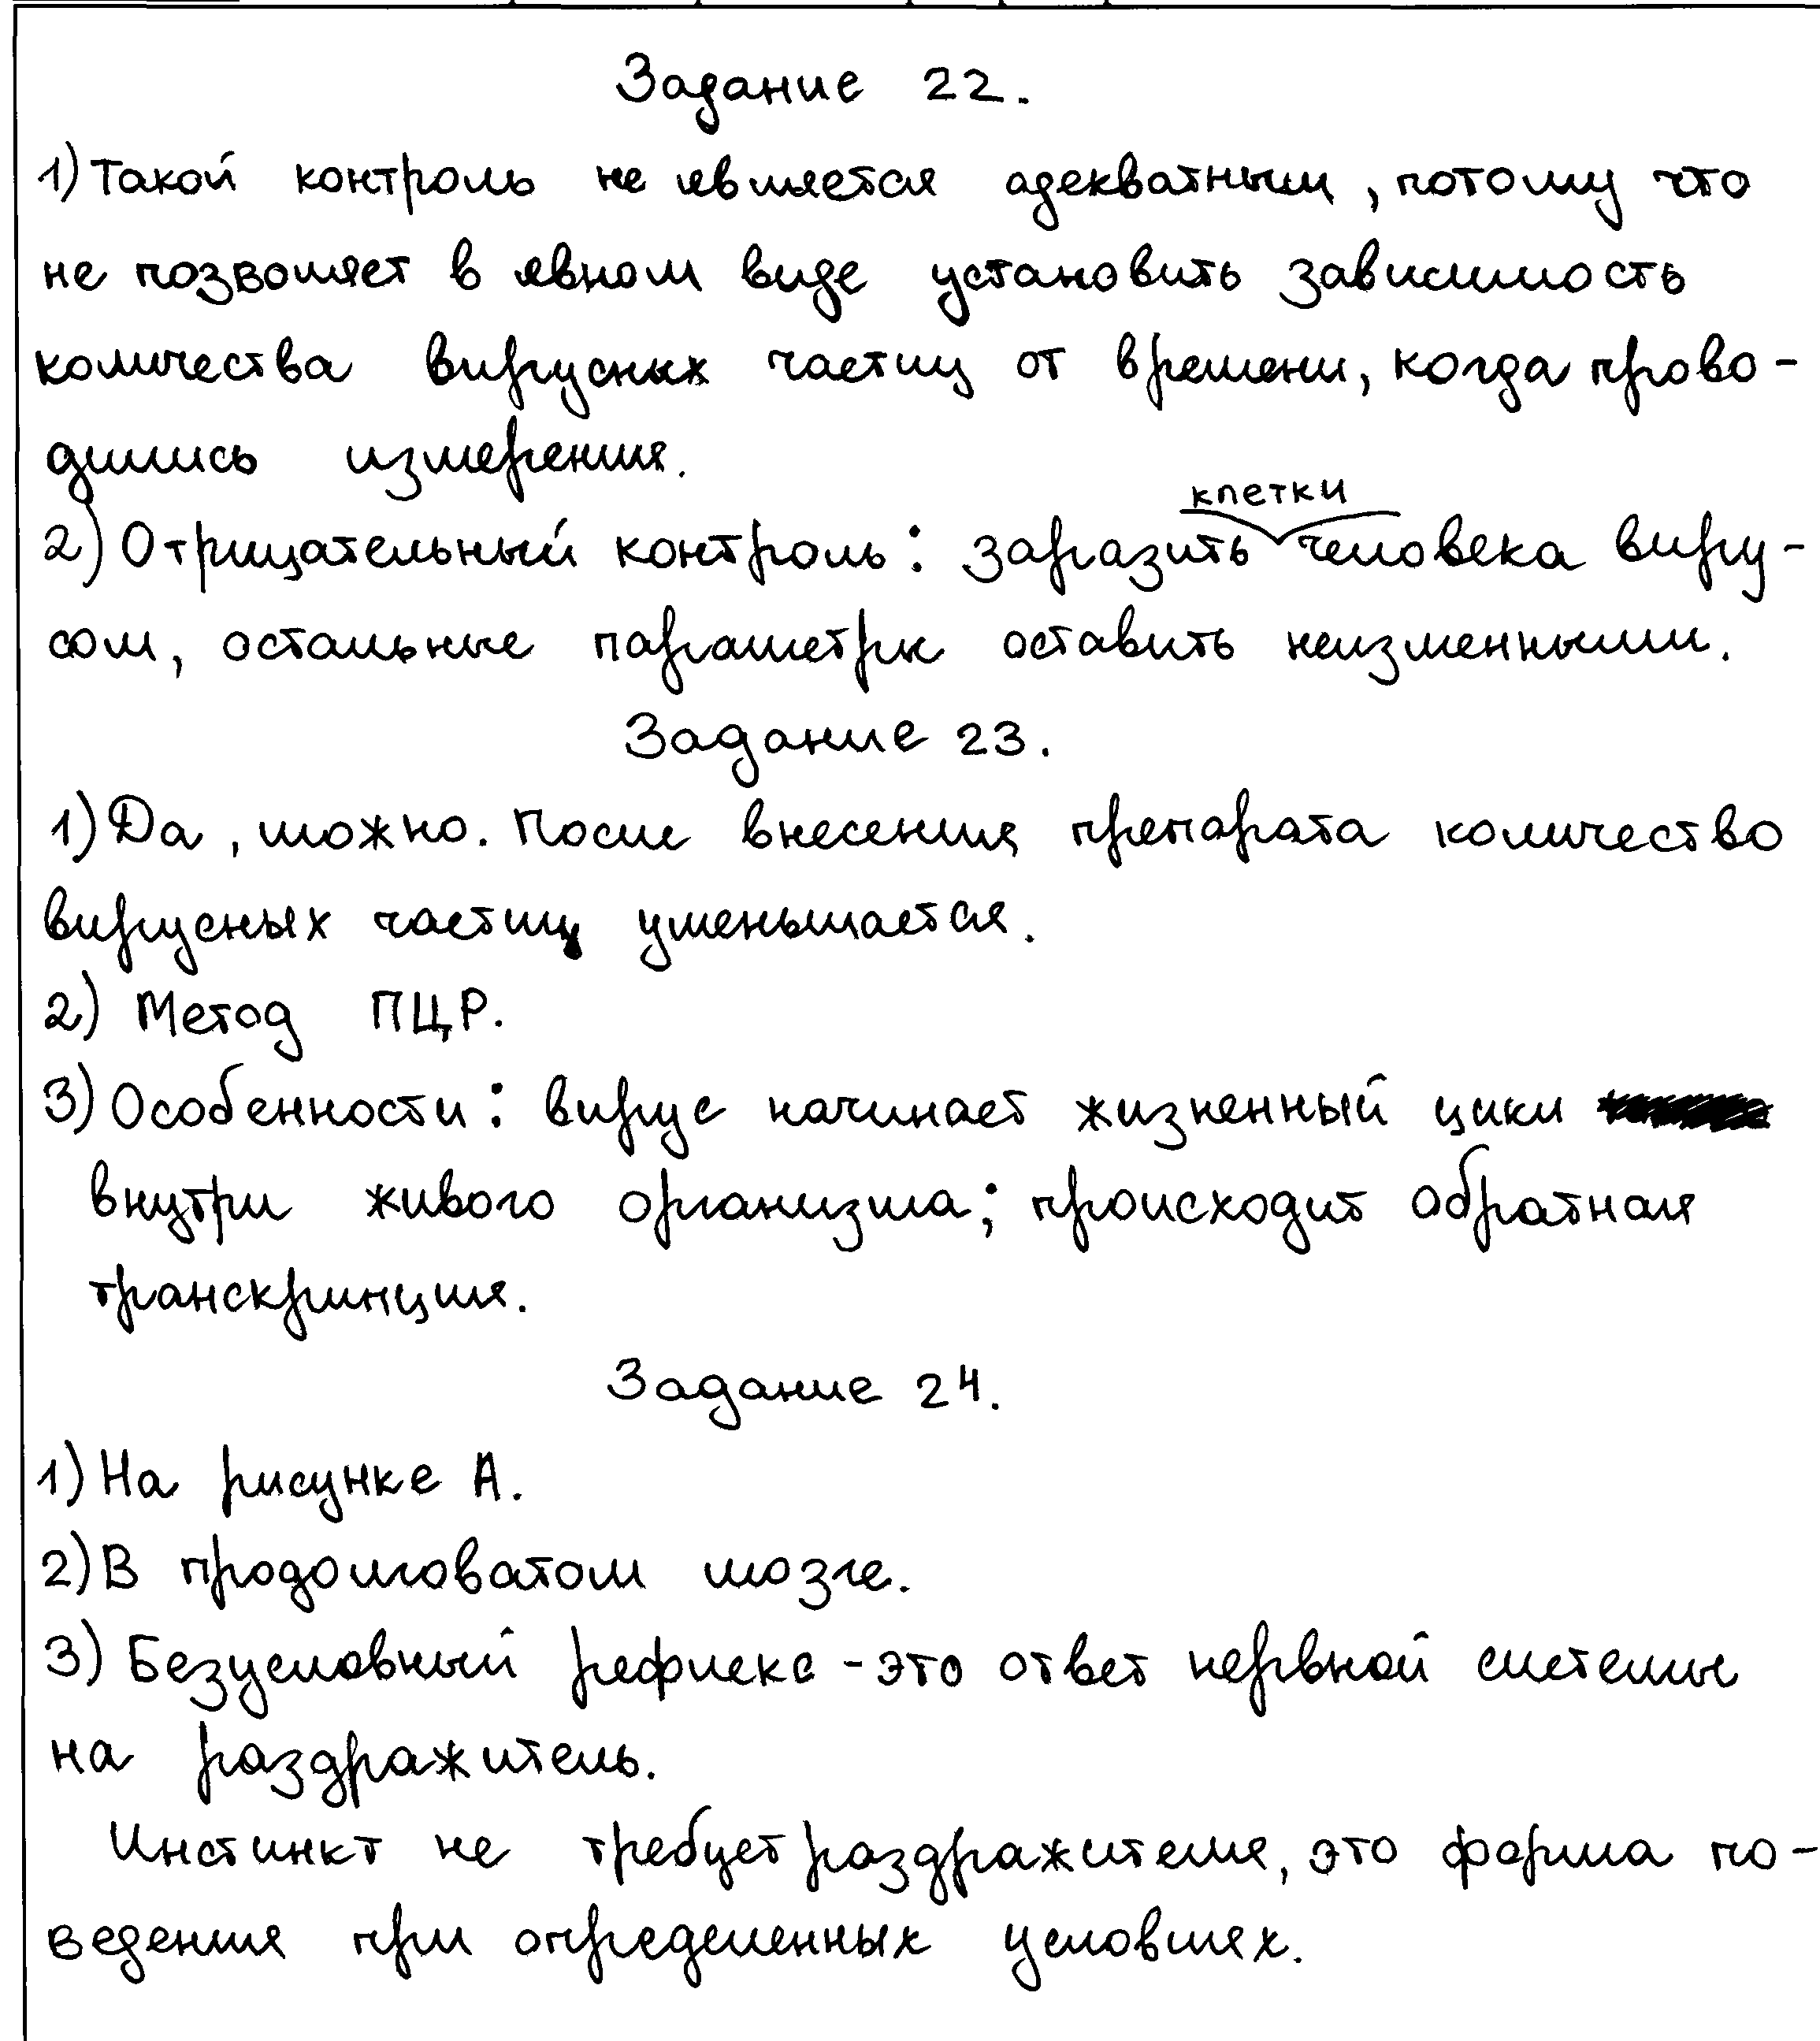 Задание 22.
1) Такой контроль не является адекватным, потому что
не позволяет в явном виде установить зависимость
количества вирусных частиц от времени, когда прово-
дились измерения.
клетки
2) Отрицательный контроль: заразить человека виру-
сом, остальные параметры оставить неизменными.
Задание 23.
1) Да, можно. После внесения препарата количество
вирусных частиц уменьшается.
2) Метод ПЦР.
3) Особенности: вирус начинает жизненный цикл
внутри живого организма; происходит обратная
транскрипция.
Задание 24.
1) На рисунке А.
2) В продолговатом мозге.
3) Безусловный рефлекс - это ответ нервной системы
на раздражитель.
Инстинкт не требует раздражителя, это форма по-
ведения при определенных условиях.